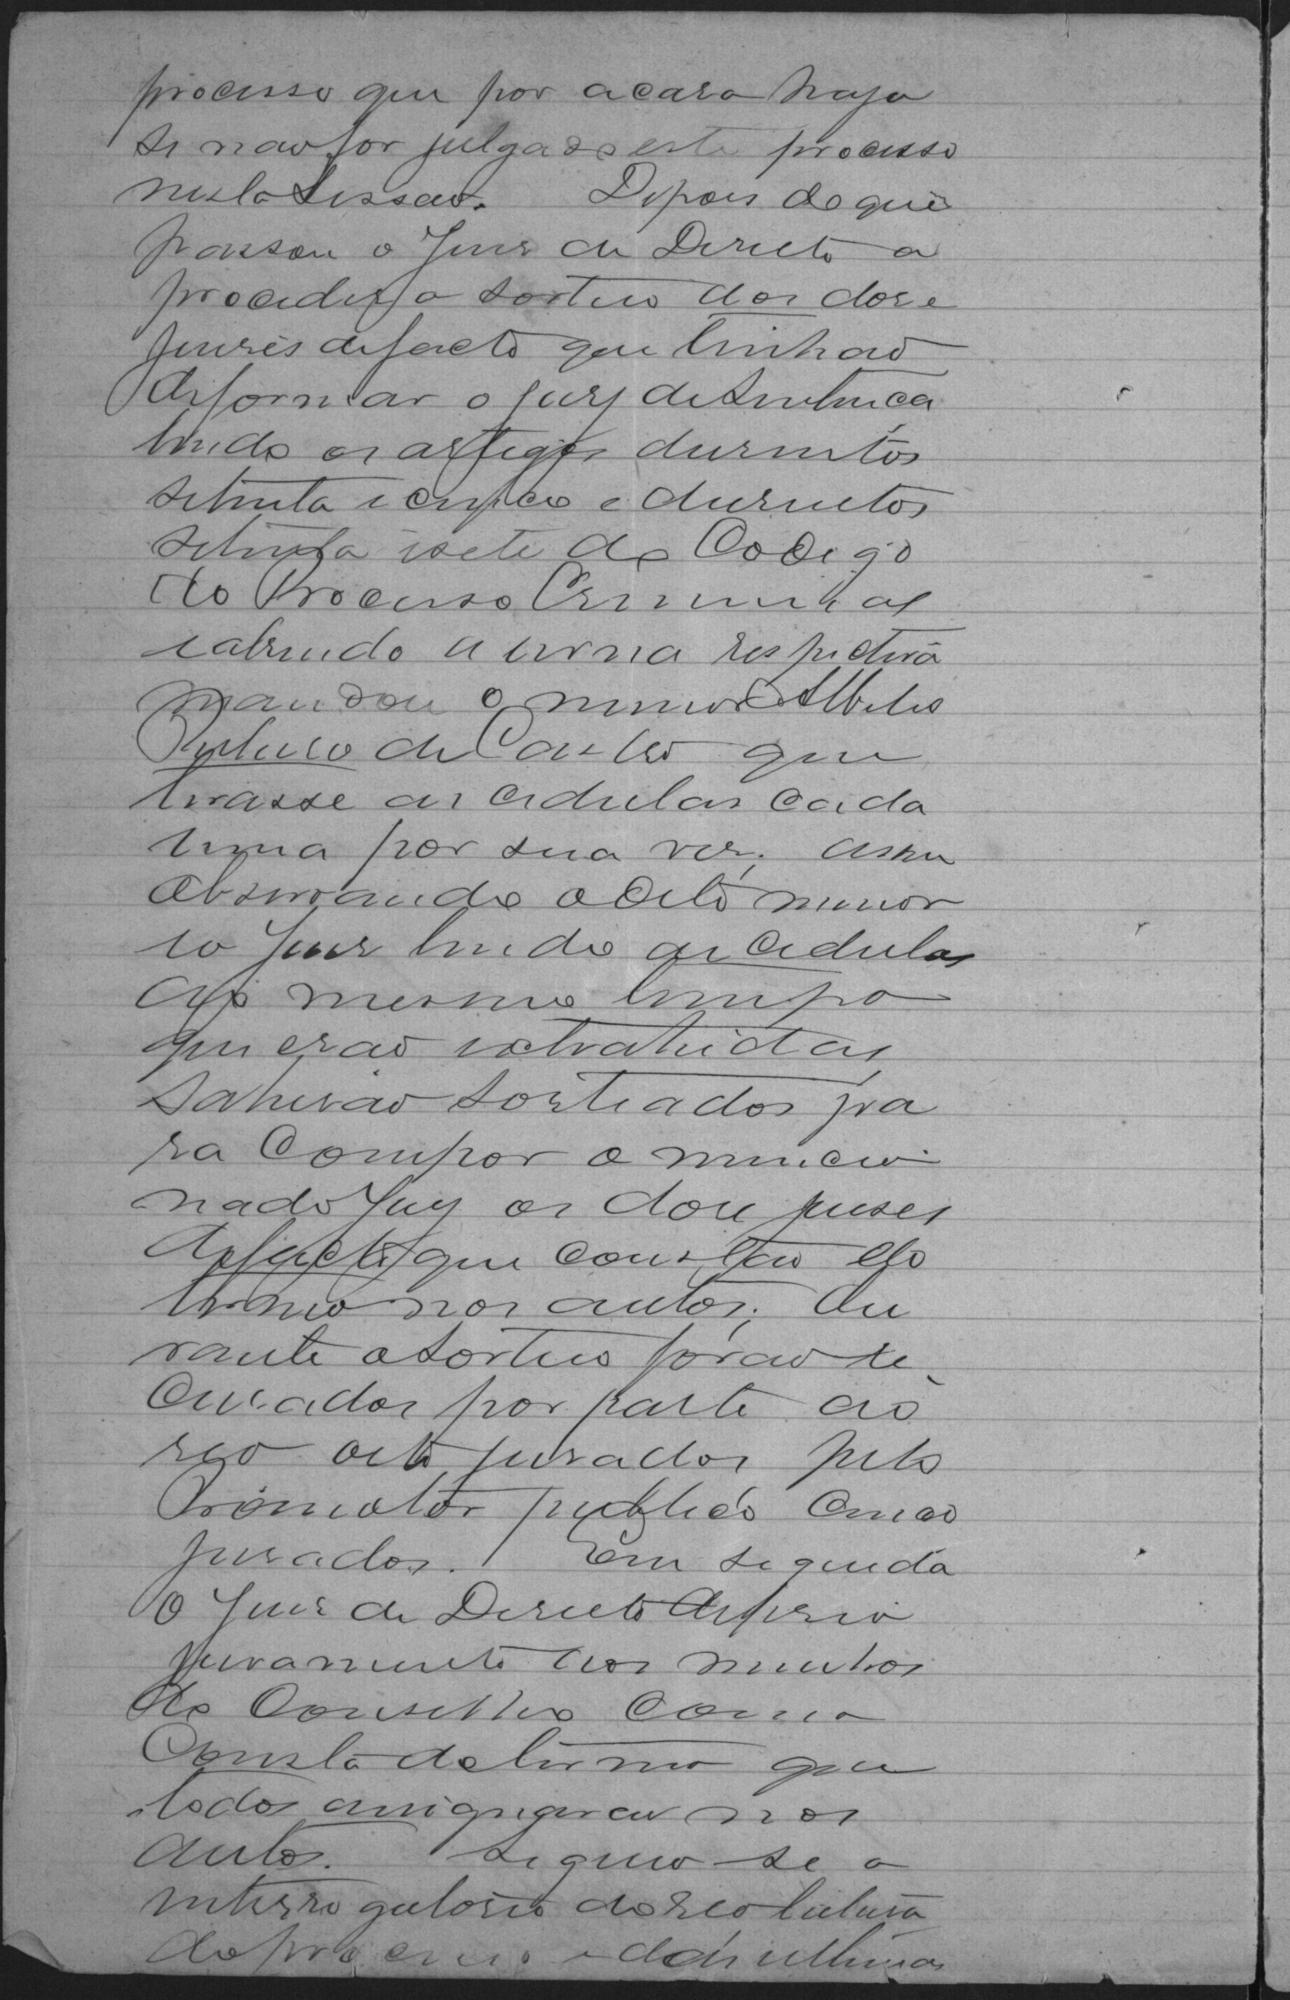 processo que por acaso haja
se nao for julgado este processo
nesta Sessao. Depois do que
passou o Juis de Direito a
proceder o sorteio dos dose
juises de facto que tinhao
de formar o jury de Sentença
lendo os artigos dusentos
setenta e cinco e dusentos
setenta e sete do Codigo
do Processo Criminal
e abrindo a urna respectiva
mandou o menor
de Castro que
tirasse as cedulas cada
uma por sua ves; assim
observando o dito menor
e o Juis lendo as cedulas
ao mesmo tempo
que erao extrahidas,
sahirao sorteados pa
ra compor o mencio
nado Jury os dose juises
de facto que constao do
termo nos autos; du
rante o sorteio forao re
cusados por parte do
reo oito jurados pelo
Promotor publico cinco
jurados. Em seguida
o Juis de Direito deferio
juramento aos membros
do Conselho como
Consta do termo que
todos assignarao nos
autos. Seguio-se o
interrogatorio do reo leitura
do processo e das ultimas